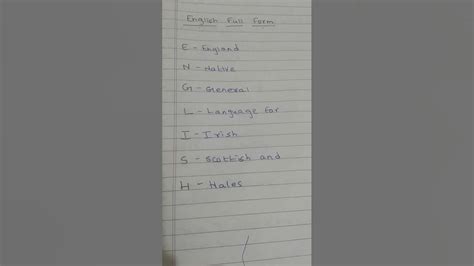 English Full Form
E - England
N - Native
G - General
L - Language for
I - Irish
S - Scottish and
H - Hales